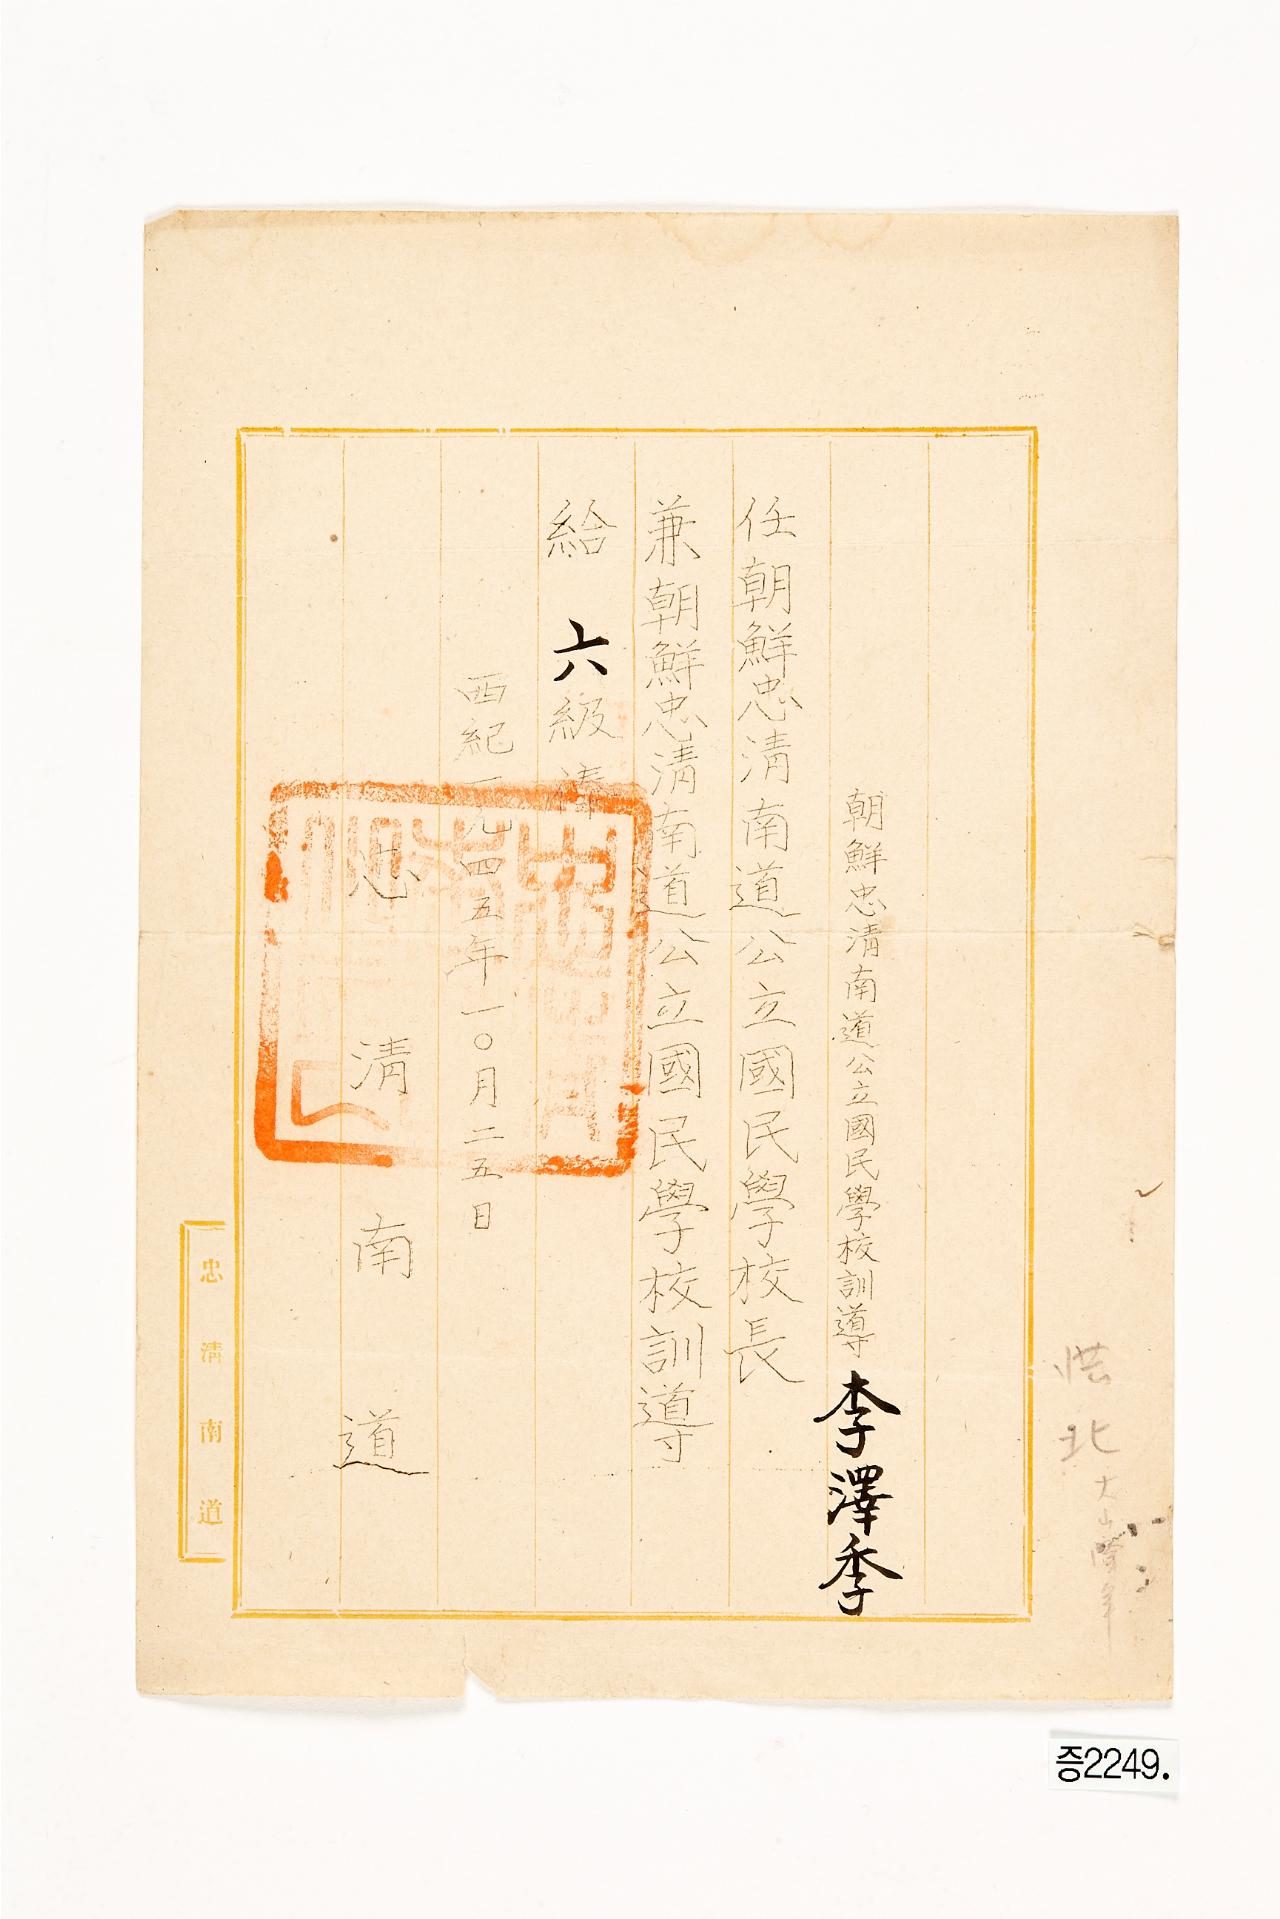 朝鮮忠清南道公立國民學校訓導 李澤季
任朝鮮忠清南道公立國民學校長
兼朝鮮忠清南道公立國民學校訓導
給 六級俸
西紀一九四五年一〇月二五日
忠清南道
忠清南道
北
증2249.